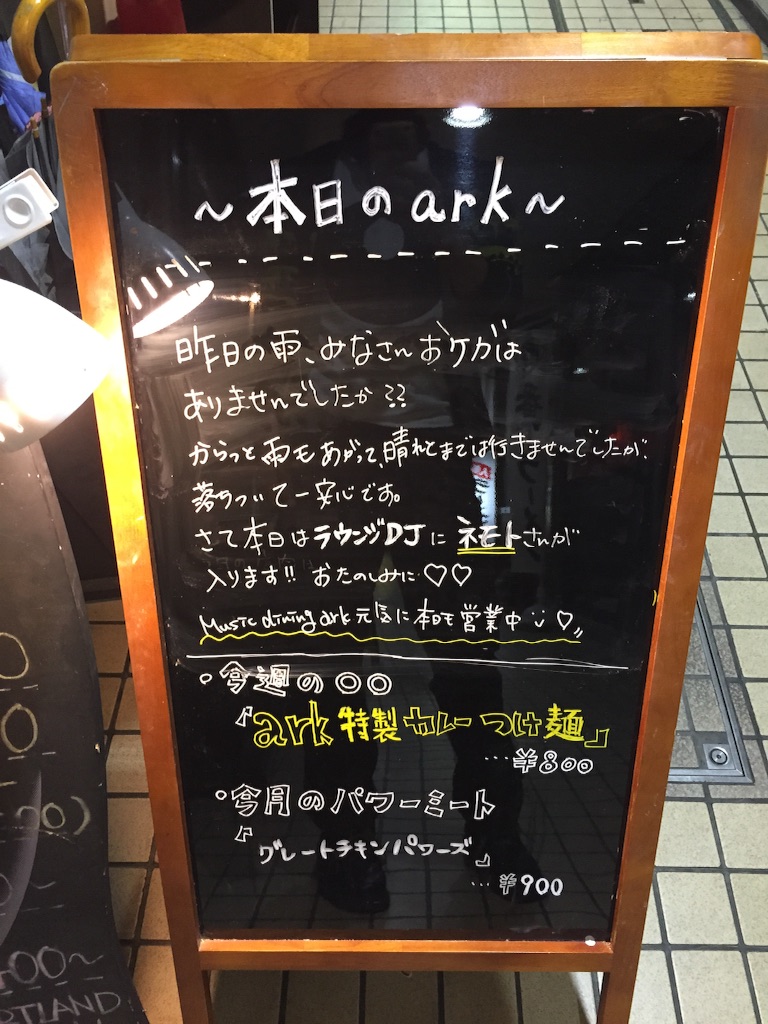 ～本日のark～
昨日の雨、みなさんおケガは
ありませんでしたか??
からっと雨もあがって、晴れとまでは行きませんでしたが、
落ちついて一安心です。
さて本日はラウンジDJにネモトさんが
入ります!! おたのしみに♡♡
Music dining ark 元気に本日も営業中 ♡
・今週の〇〇
『ark特製カレーつけ麺』
…¥800
・今月のパワーミート
『グレートチキンパワーズ』
…¥900
00～
RTLAND